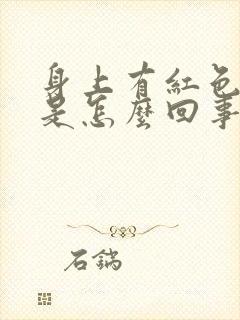 身上有紅色
是怎麼回事
石鍋